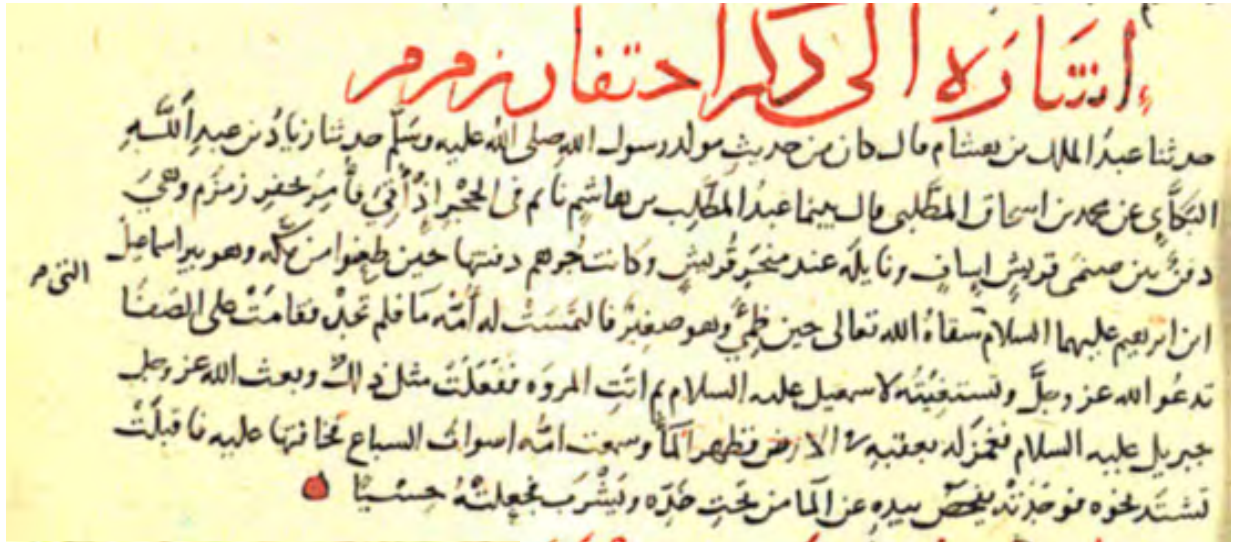 إشارة إلى ذكر احتفار زمزم
حدثنا عبدُ الملك بن هشام قال كان من حديثِ مولد رسول اللهِ صلى اللهُ عليه وسَلّم حدثنا زيادُ بن عبدِ اللَّهِ
البَكَّاءِي عن محمد بن اسحاق المطَّلبى قال بينما عبدُ المطَّلِب بن هاشمٍ نائم فى الحِجْرِ إذْ أُتِيَ فأُمِرَ بحفرِ زمزَم وهيَ
دفنٌ بين صنمَى قريشٍ إسافٍ ونايلَه عند منحَرِ قُريشٍ وكانت جُرهم دفنتها حين ظعنوا من مكّه وهو بير اسماعيلَ
التى م
ابن ابرهيم عليهما السلام سقاهُ الله تعالى حين ظمِيءَ وهو صغيرٌ فالتمسَتْ له أمّه مَا فلم تَجدْ فقامَتْ على الصَفَا
تدعُو الله عز وجلَّ وتستغيثُه لاسمعيل عليه السلام ثم اتتِ المروَه ففعَلتْ مثل ذلك وبعث الله عز وجل
جبريل عليه السلام فغمزَ له بعقبهِ فى الارض فظهر المآُ وسمعت امّه اصوات السباع فخافتها عليه فاقبلَتْ
تشتد نحوه فوجَدَتْه يفحَصُ بيدِهِ عن المآ من تحتِ خَدّهِ ويَشْرَبُ فجعلَتْهُ حِسْيًا